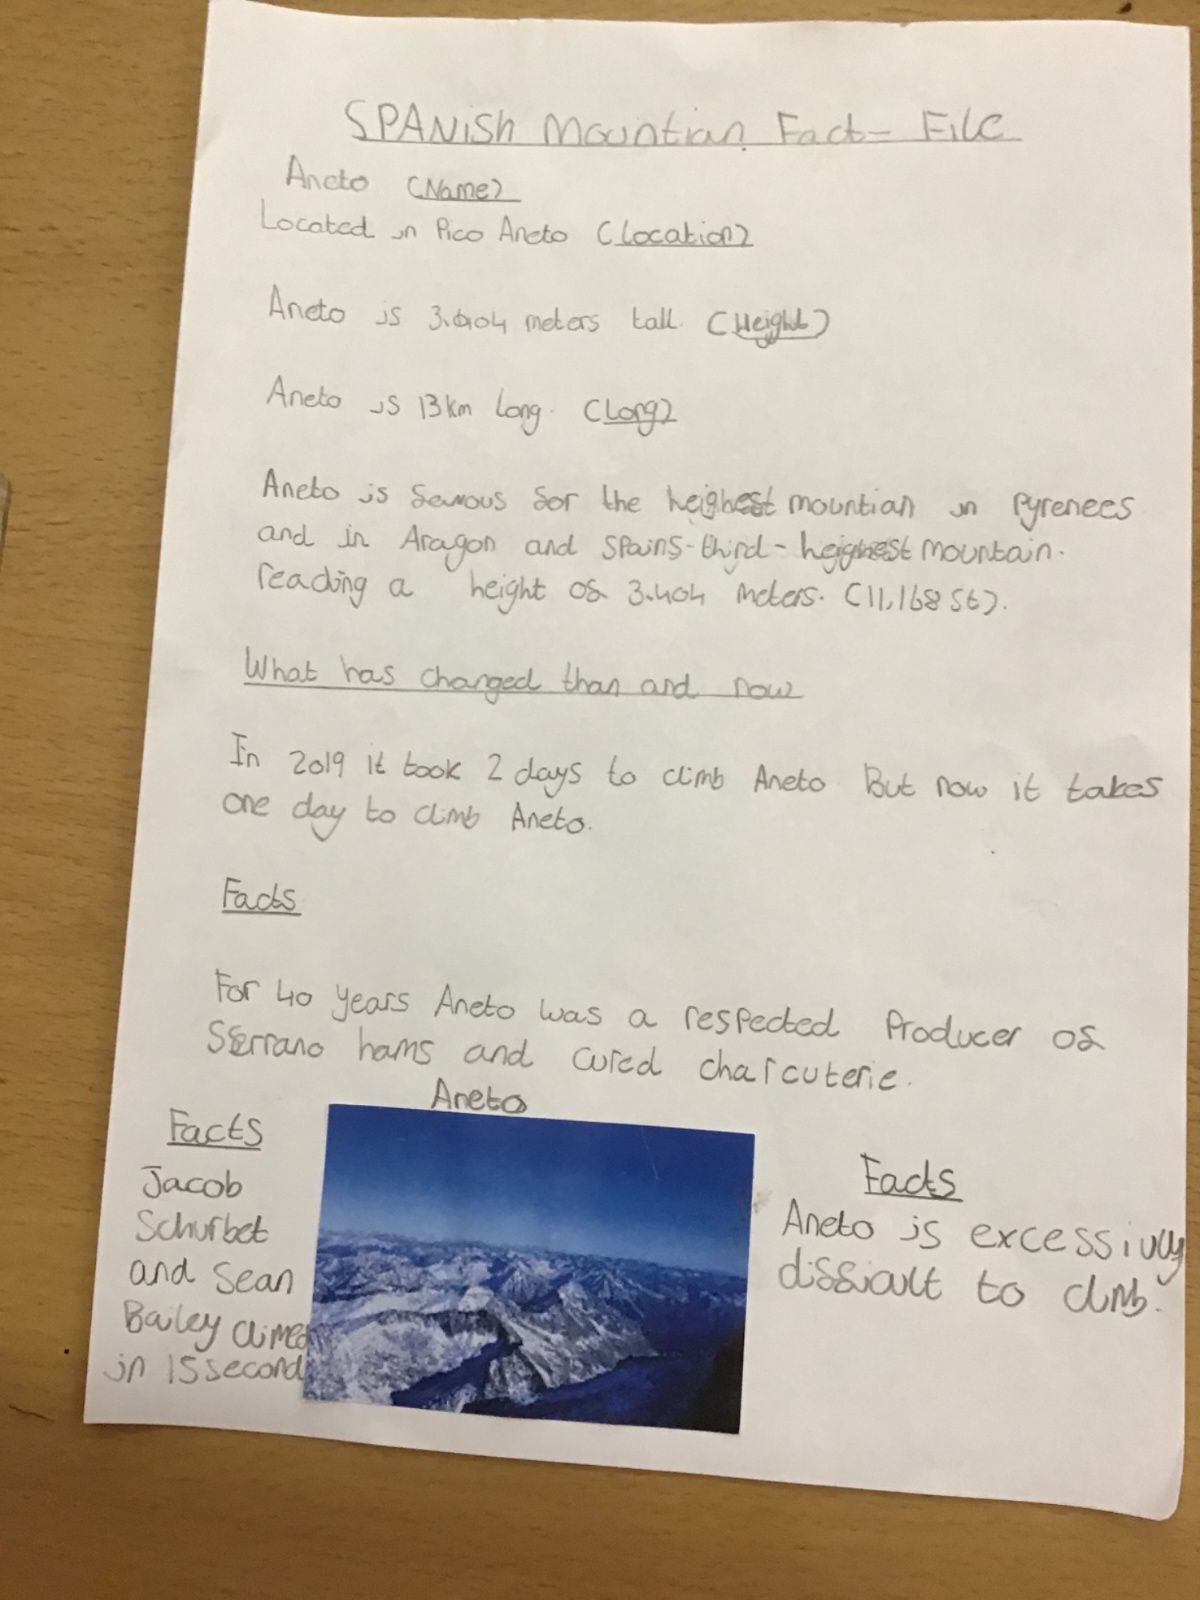 SPANish Mountian Fact- File
Aneto (Name)
Located in Pico Aneto (Location)
Aneto is meters tall. (Height)
Aneto is 13km long. (Long)
Aneto is famous for the heighest mountian in Pyrenees
and in Aragon and Spains-third-heighest mountain.
reading a height of 3.404 meters. (11,168 ft).
What has changed than and now
In 2019 it took 2 days to climb Aneto. But now it takes
one day to climb Aneto.
Facts
For 40 years Aneto was a respected Producer of
Serrano hams and cured charcuterie.
Aneto
Facts
Jacob
Schurbet
and Sean
Bailey climed
in 15 second
Facts
Aneto is excessivly
difficult to climb.